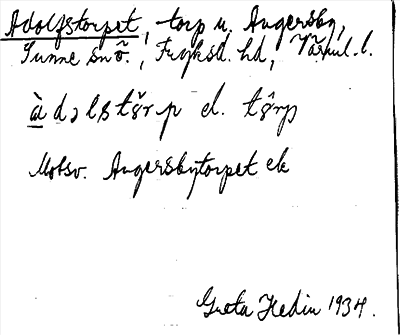 Adolfstorpet, torp u. Angersby,
Sunne snö., Fryksd. hd, Värml. l.
àdəlstŏ̤rp el. tô̤rp
Motsv. Angersbytorpet ek
Greta Hedin 1934.